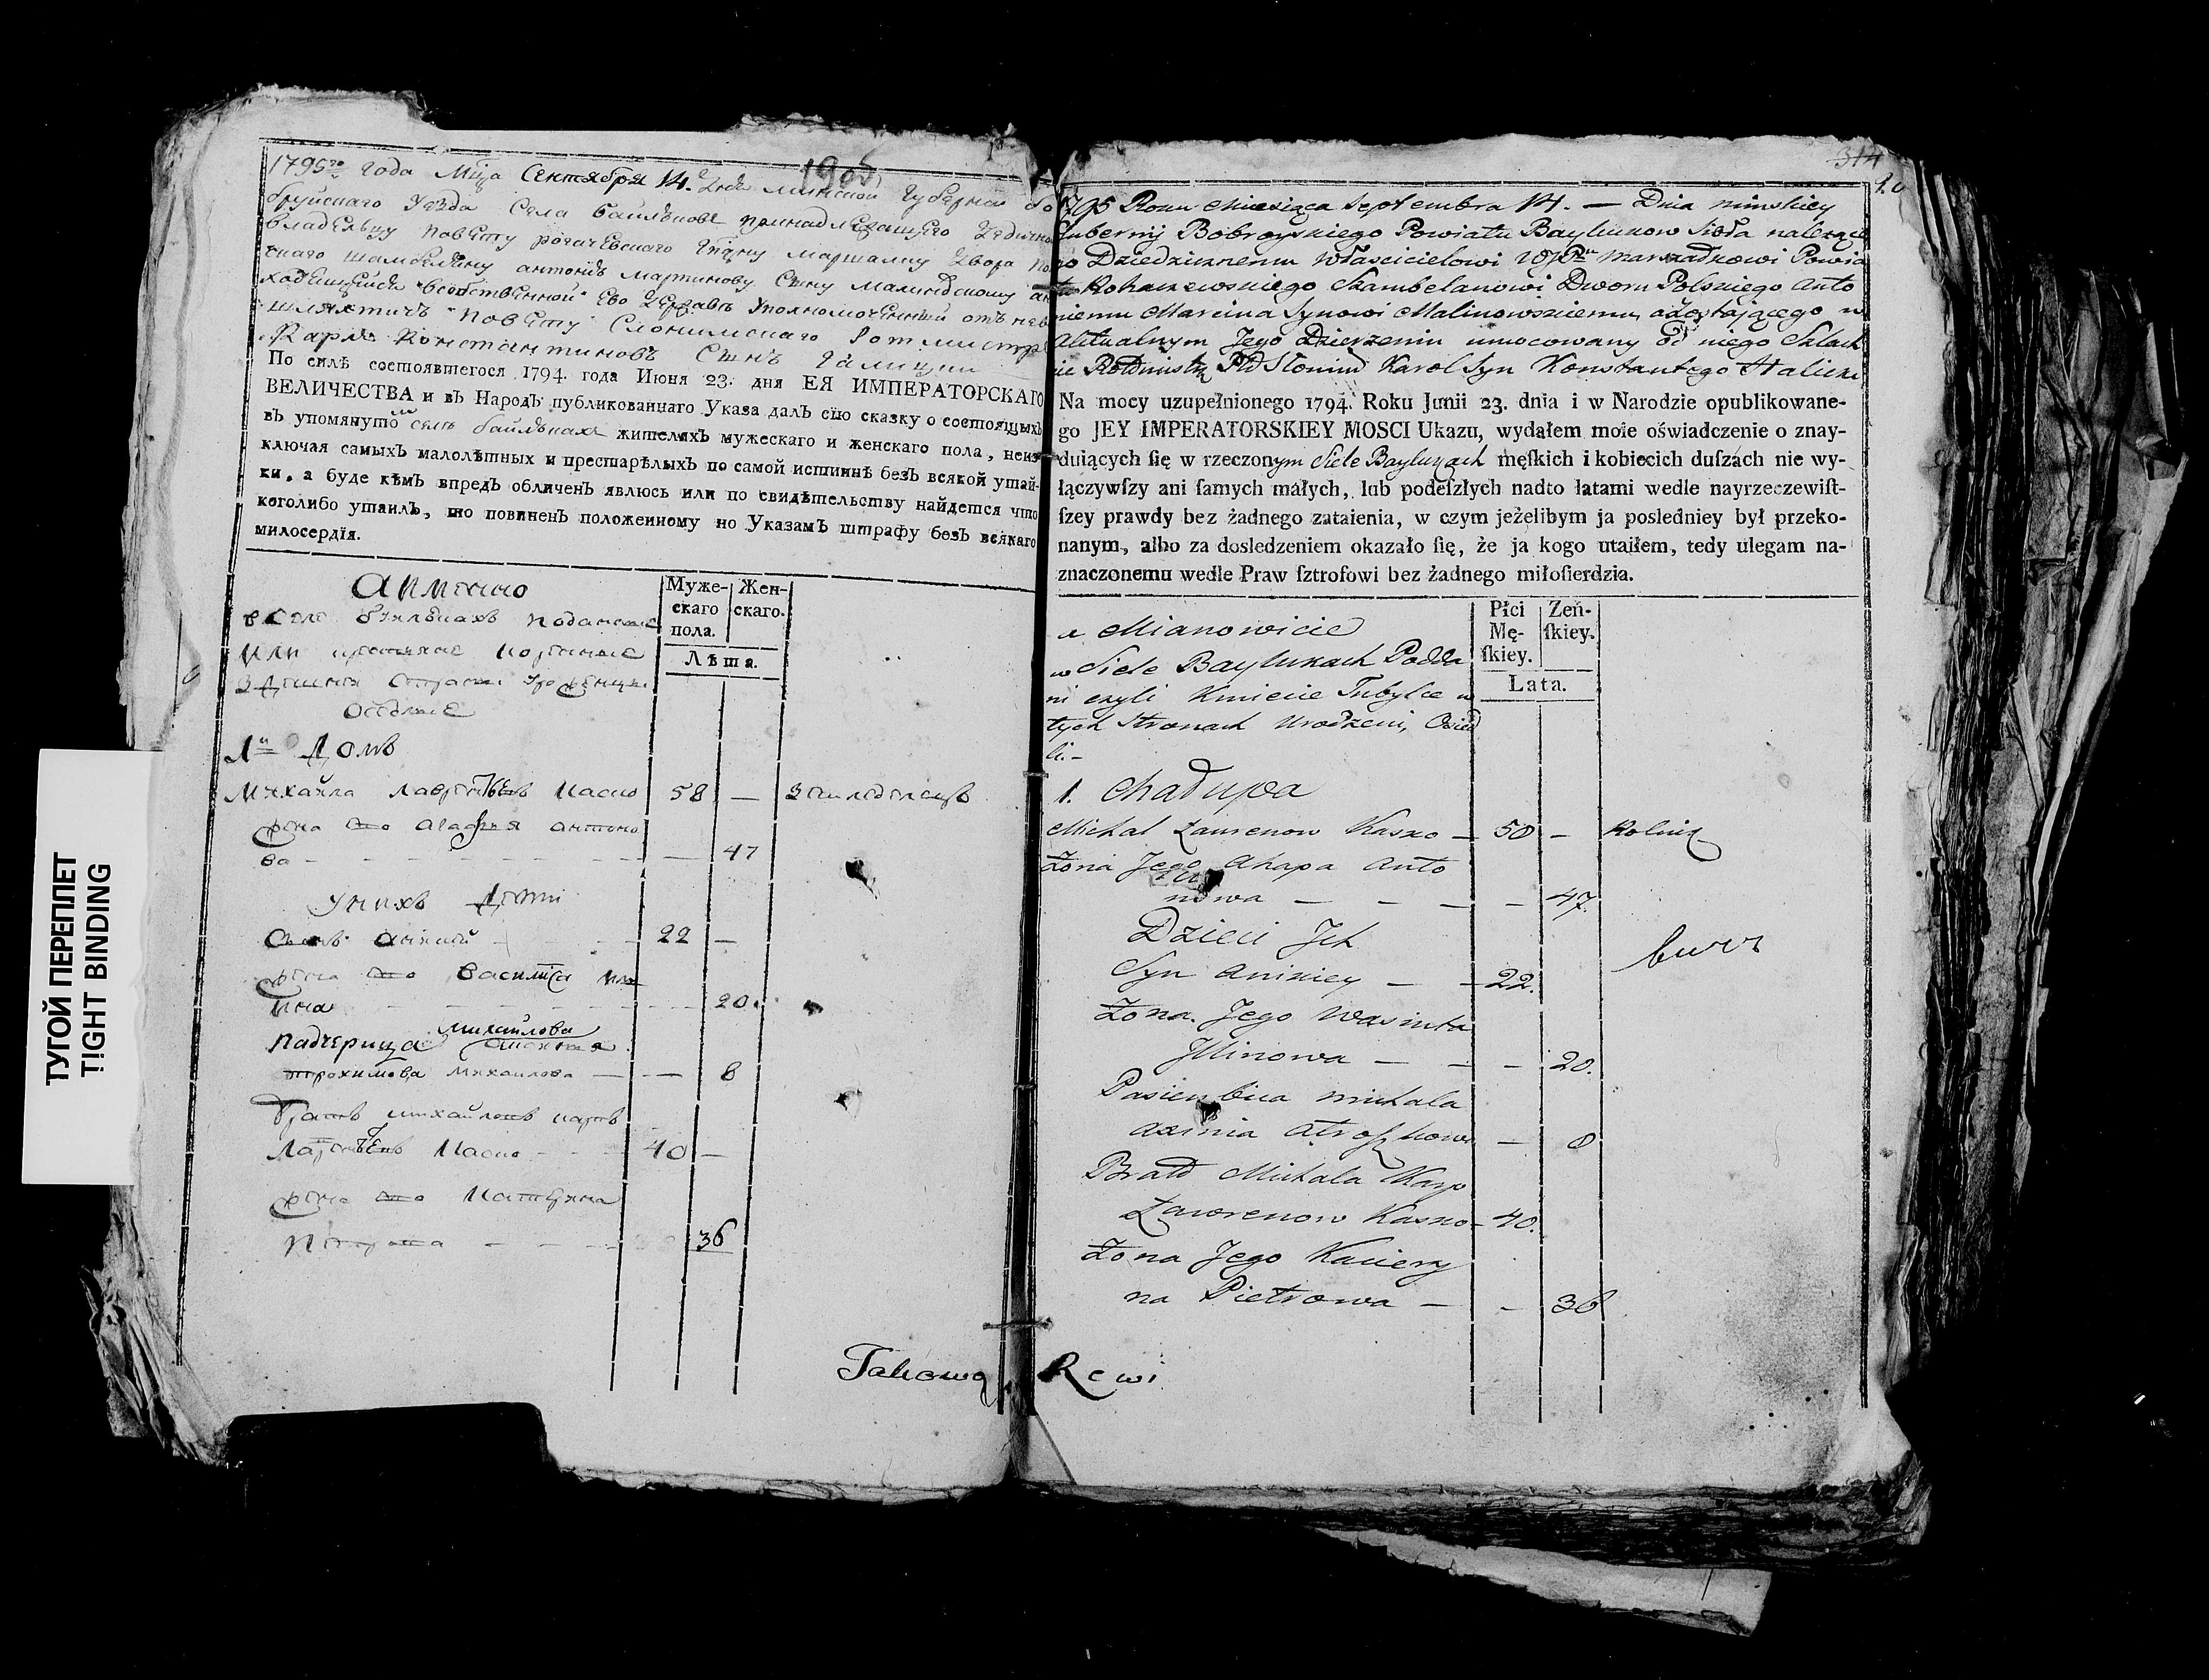 1905
1795го Года Мца Сентября 14. дня минской Губернии бо
бруйскаго Уезда Села Байлюкове принадлежащего
владельцу повету рогачевского маршалку двора по
скаго шамбеляну антонию мартинову сыну малиновскому
уполномоченный от него
шляхтичъ повету Слонимскаго Ротмистръ
Карлъ Константиновъ Сынъ Галицки
По силѣ состоявшегося 1794. года Июня 23. дня ЕЯ ИМПЕРАТОРСКАГО
ВЕЛИЧЕСТВА и въ Народъ публикованнаго Указа далъ сію сказку о состоящихъ
въ упомянутомъ селѣ байлюкахъ жителяхъ мужескаго и женскаго пола, неиз-
ключая самыхъ малолѣтныхъ и престарѣлыхъ по самой истиннѣ безъ всякой утай-
ки, а буде кѣмъ впредъ обличенъ явлюсь или по свидѣтельству найдется что
коголибо утаилъ, то повиненъ положенному по Указамъ штрафу безъ всякаго
милосердія.
Муже-
скаго
пола.
Жен-
скаго.
Лѣта.
А имянно
в селе байлюкахъ поданые
или
оседлые
1й Домъ
Михайла Лавреновъ Каско 58 — Земледелецъ
жена его агафия антоно
ва — 47
У нихъ дети
Сынъ аникий 22 —
жена его Василиса Ил
ина 20.
падчерица Михайлова
трохимова михаилова — — 8
братъ михайловъ карпъ
Лавреновъ Каско 40 —
жена его Катерина
Петрова — 36
Takowa Rewi
314
20
1795 Roku Miesiąca Septembra 14. — Dnia minskiey
Gubernij Bobroyskiego Powiatu Baylukow Sioła należące
go Dziedzicznemu Właścicielowi WJPu marszałkowi Powia
tu Rohaczewskiego Szambelanowi Dworu Polskiego Anto
niemu Marcina Synowi Malinowskiemu, a zostającego w
Aktualnym Jego Dzierżeniu umocowany od niego Szlach
cic Rotmistrz Ptu Słonim Karol Syn Konstantego Halicki
Na mocy uzupełnionego 1794. Roku Junii 23. dnia i w Narodzie opublikowane-
go JEY IMPERATORSKIEY MOSCI Ukazu, wydałem moie oświadczenie o znay-
duiących ſię w rzeczonym Siele Baylukach męſkich i kobiecich duſzach nie wy-
łączywſzy ani ſamych małych, lub podeſzłych nadto łatami wedle nayrzeczewiſt-
ſzey prawdy bez żadnego zataienia, w czym jeżelibym ja posledniey był przeko-
nanym, albo za dosledzeniem okazało ſię, że ja kogo utaiłem, tedy ulegam na-
znaczonemu wedle Praw ſztrofowi bez żadnego miłoſierdzia.
Płci
Mę-
ſkiey.
Żeń-
ſkiey.
Lata.
a Mianowicie
w Siele Baylukach Podda
ni czyli Kmiecie Tubylce w
tych Stronach Urodzeni, Osied
li.-
1. Chałupa
Michał Ławrenow Kasko — 58 — Rolnik
Żona Jego Ahapa Anto
nowa — — — — 47.
Dzieci Jch
Syn Anikiey — — 22.
Żona Jego Wasiuta
Jllinowa — — — 20.
Pasierbica michała
axinia — 8
Brat Michała Karp
Ławrenow Kasko — 40.
Żona Jego Kaciery
na Pietrowa — — 36
ТУГОЙ ПЕРЕПЛЕТ
TIGHT BINDING